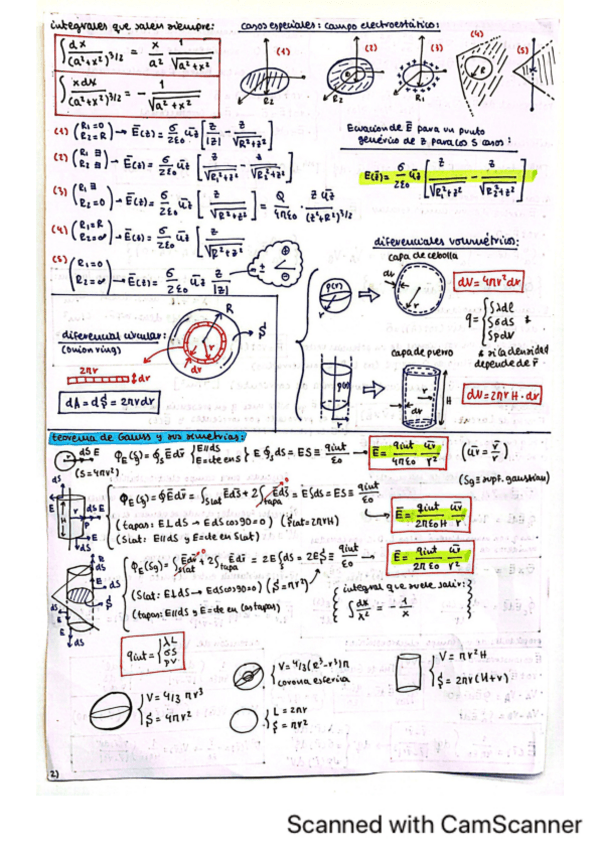 integrales que salen siempre:
∫ dx/(a²+x²)^3/2 = x/a² 1/√a²+x²
∫ xdx/(a²+x²)^3/2 = - 1/√a²+x²
casos especiales: campo electroestático:
(1) (2) (3) (4) (5)
R₂ R₂ R₁ R
(1) (R₁=0 R₂=R) → Ē(z) = σ/2ε₀ ūz [z/|z| - z/√R²+z²]
(2) (R₁ ∃ R₂ ∃) → Ē(z) = σ/2ε₀ ūz [z/√R₁²+z² - z/√R₂²+z²]
(3) → Ē(z) = σ/2ε₀ ūz [z/√R₁²+z²] = Q/4πε₀ · z ūz/(z²+R²)^3/2
(4) (R₁=R R₂=∞) → Ē(z) = σ/2ε₀ ūz [z/√R²+z²]
(5) (R₁=0 R₂=∞) → Ē(z) = σ/2ε₀ ūz z/|z|
Ecuacion de Ē para un punto
genérico de z para los 5 casos:
E(z̄) = σ/2ε₀ ūz [z/√R₁²+z² - z/√R₂²+z²]
diferenciales volumétricos:
capa de cebolla
dr
ρ(r)
r
dV = 4πr²dr
q = { ∫λdl ∫σds ∫ρdv
& si la densidad
depende de r̄
capa de puerro
ρ(r)
r
dr
H
dV = 2πrH·dr
diferencial circular:
(onion ring)
R
r
dr
$
2πr
dr
dA = d$ = 2πrdr
teorema de Gauss y sus simetrías:
dS E
(S=4πr²)
ΦE(S) = ∮s Ēds̄ { E∥ds E=cte en S } E ∮s ds = ES ≡ qint/ε₀ → Ē = qint/4πε₀ ūr/r² (ūr = r̄/r)
(Sg ≡ supf. gaussiana)
ΦE(S) = ∮Ēds̄ = ∫Slat Ēds̄ + 2∫tapa Ēds̄ = E∫ds = ES ≡ qint/ε₀
(tapas: E⊥dS → EdS cos90=0) ($lat=2πrH)
(Slat: E∥dS y E=cte en Slat)
Ē = qint/2πε₀H ūr/r
ΦE(Sg) = ∫Slat Ēds̄ + 2∫tapa Ēds̄ = 2E∫ds = 2E$ ≡ qint/ε₀ → Ē = qint/2πε₀ ūr/r²
(Slat: E⊥dS → EdScos90=0) ($=πr²)
(tapas: E∥dS y E=cte en las tapas)
integral que suele salir:
∫ dx/x² = - 1/x
qint = { λL σS ρV
V = 4/3 πr³
$ = 4πr²
V = 4/3(R³-r³)π
corona esférica
L = 2πr
$ = πr²
V = πr²H
$ = 2πr(H+r)
2)
Scanned with CamScanner